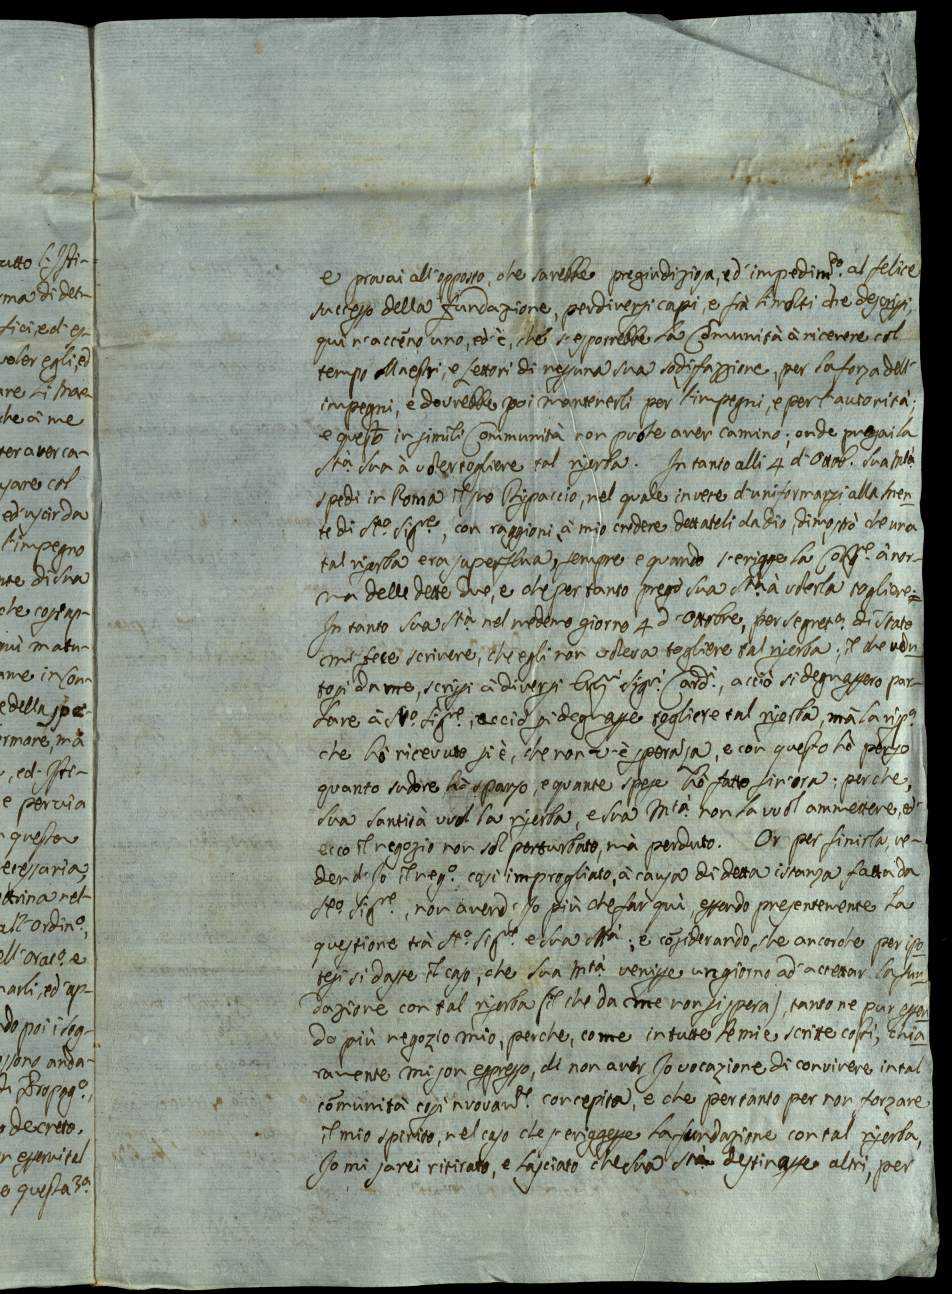 utto l'Isti-
rma di det-
fici, ed es-
voler egli, ed
are li Mae-
che à me
ter aver ca-
sare col
ed uscir da
l'impegno
nte di Sua
che così ap-
qui matu-
ame in Con-
e della spe-
ormare, mà
, ed Isti-
e per via
questa
ecessaria,
ottrina nel-
all'Ordin.º,
ell'Orat.º e
narli, ed ap-
do poi i seg-
ssono anda-
di Propag.º,
o decreto.
n esservi tal
e questa 3ª
e provai all'opposto, che sarebbe pregiudiziosa, ed impedim.to al felice
successo della fundazione, per diversi capi, e frà li molti che descrissi,
qui n'accenno uno, ed è, che s'esporrebbe la Comunità à ricevere col
tempo Maestri, e Lettori di nessuna sua sodisfazzione, per la forza dell'
impegni, e dovrebbe poi mantenerli per l'impegni, e per l'autorità;
e questo in simili Communità non puole aver camino; onde pregai la
Stà Sua à voler togliere tal riserba. In tanto alli 4 d'Ottob. Sua Mtà
spedì in Roma il suo Dispaccio, nel quale invece d'uniformarsi alla men-
te di Nro. Sig.re, con raggioni, à mio credere dettateli da Dio, dimostrò che una
tal riserba era superflua, sempre e quando s'erigge la Cong.e à nor-
ma delle dette due, e che per tanto pregò Sua Stà à volerla togliere=
In tanto Sua Stà nel medemo giorno 4 d'Ottobre, per Segret.º di Stato
mi fece scrivere, che egli non voleva togliere tal riserba; il che vedu
tosi da me, scrissi à diversi Em̃i Sigri. Cardi., acciò si degnassero par-
lare à Nro. Sig.re, acciò si degnasse togliere tal riserba, mà la risp.ª
che hò ricevuto si è, che non v'è speranza, e con questo hò perso
quanto sudore hò sparso, e quante spese hò fatto sin'ora; perche,
Sua Santità vuol la riserba, e Sua Mtà non la vuol ammettere, ed
ecco il negozio non sol perturbato, mà perduto. Or per finirla, ve-
dend'Io il neg.º così improgliato, à causa di detta istanza fatta da
Nro. Sig.re, non avend'Io più che far quì, essendo presentemente la
questione trà Nro. Sig.re e Sua Mtà; e considerando, che ancorche per ipo
tesi si dasse il caso, che Sua Mtà venisse un giorno ad accettar la fun
dazione con tal riserba (il che da me non si spera), tanto ne pur essen
do più negozio mio, perche, come in tutte le mie scritte costì, chia
ramente mi son espresso, di non aver Io vocazione di convivere in tal
comunità così nuovam.te concepita, e che pertanto per non forzare
il mio spirito, nel caso che s'eriggesse la fundazione con tal riserba,
Io mi sarei ritirato, e lasciato che Sua Stà destinasse altri, per